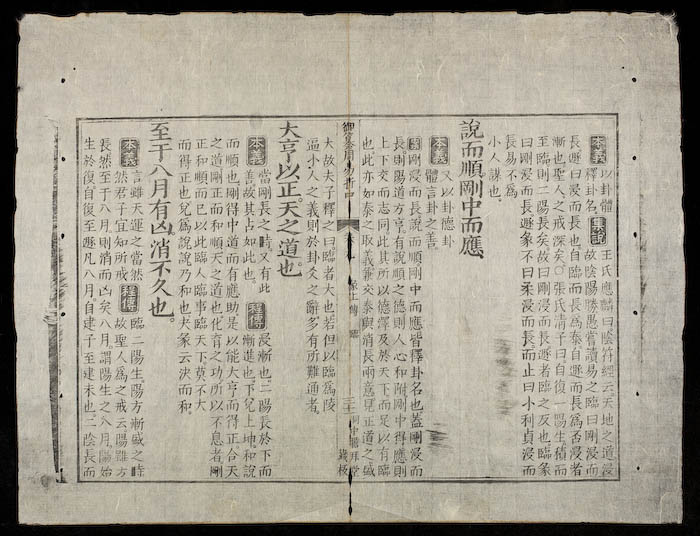 本義 以卦體
釋卦名 集說 王氏應麟曰陰符經云天地之道浸
故陰陽勝愚嘗讀易之臨曰剛浸而
長遯曰浸而長也自臨而長為泰自遯而長為否浸者
漸也聖人之戒深矣○張氏清子曰自復一陽生積而
至臨則二陽長矣故曰剛浸而長遯者臨之反也臨彖
曰剛浸而長遯彖不曰柔浸而長而止曰小利貞浸而
長易不為
小人謀也
說而順剛中而應
本義 又以卦德卦
體言卦之善
案 剛浸而長說而順剛中而應皆釋卦名也蓋剛浸而
長則陽道方亨有說順之德則人心和附剛中得應則
上下交而志同此其所以德澤及於天下而足以有臨
也此亦如泰之取義兼交泰與消長兩意見正道之盛
御纂周易折中
大故夫子釋之曰臨者大也若但以臨為陵
逼小人之義則於卦爻之辭多有所難通者
大亨以正天之道也
本義 當剛長之時又有此
善故其占如此也 程傳 浸漸也二陽長於下而
漸進也下兌上坤和說
而順也剛得中道而有應助是以能大亨而得正合天
之道剛正而和順天之道也化育之功所以不息者剛
正和順而已以此臨人臨事臨天下莫不大
而得正也兌為說說乃和也夬彖云決而和
至于八月有凶消不久也
本義 言雖天運之當然
然君子宜知所戒 程傳 臨二陽生陽方漸盛之時
故聖人為之戒云陽雖方
長然至于八月則消而凶矣八月謂陽生之八月陽始
生於復自復至遯凡八月自建子至建未也二陰長而